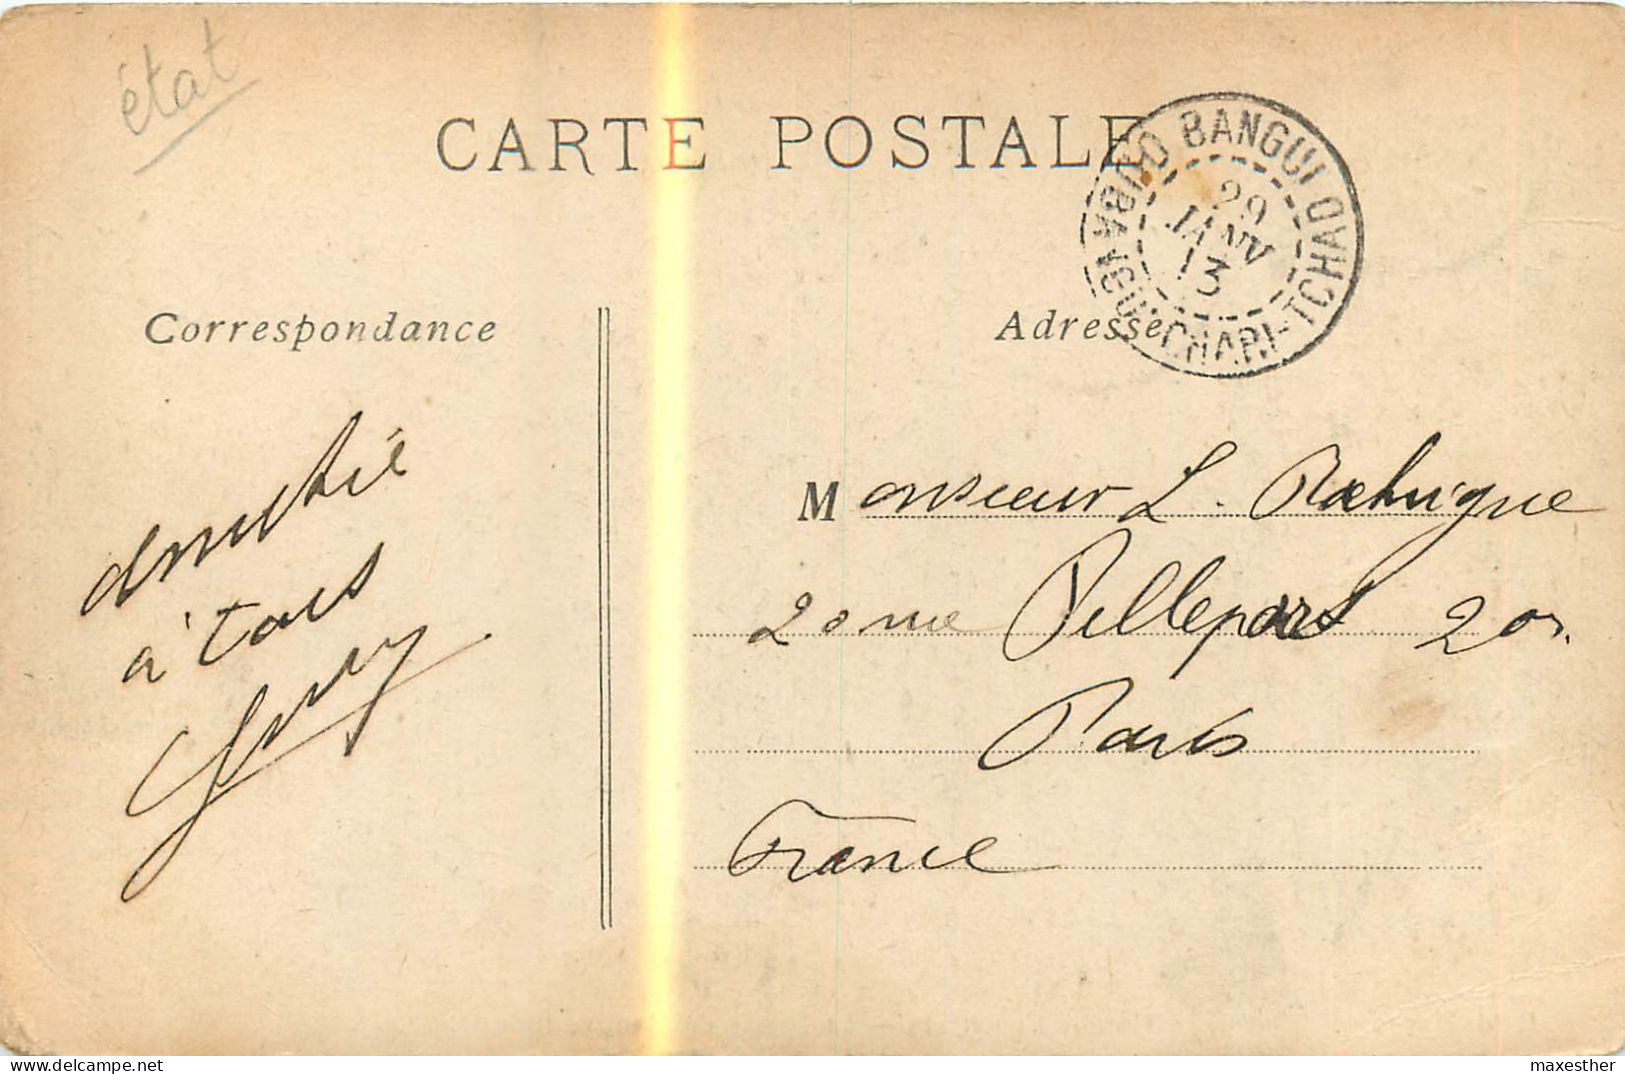 état
CARTE POSTALE
BANGUI OUBANGUI-CHARI-TCHAD
29
JANV
13
Correspondance
Adresse
amitié
à tous
Monsieur L.
20 rue Pelleport 20
Paris
France
delcampe.net
maxesther